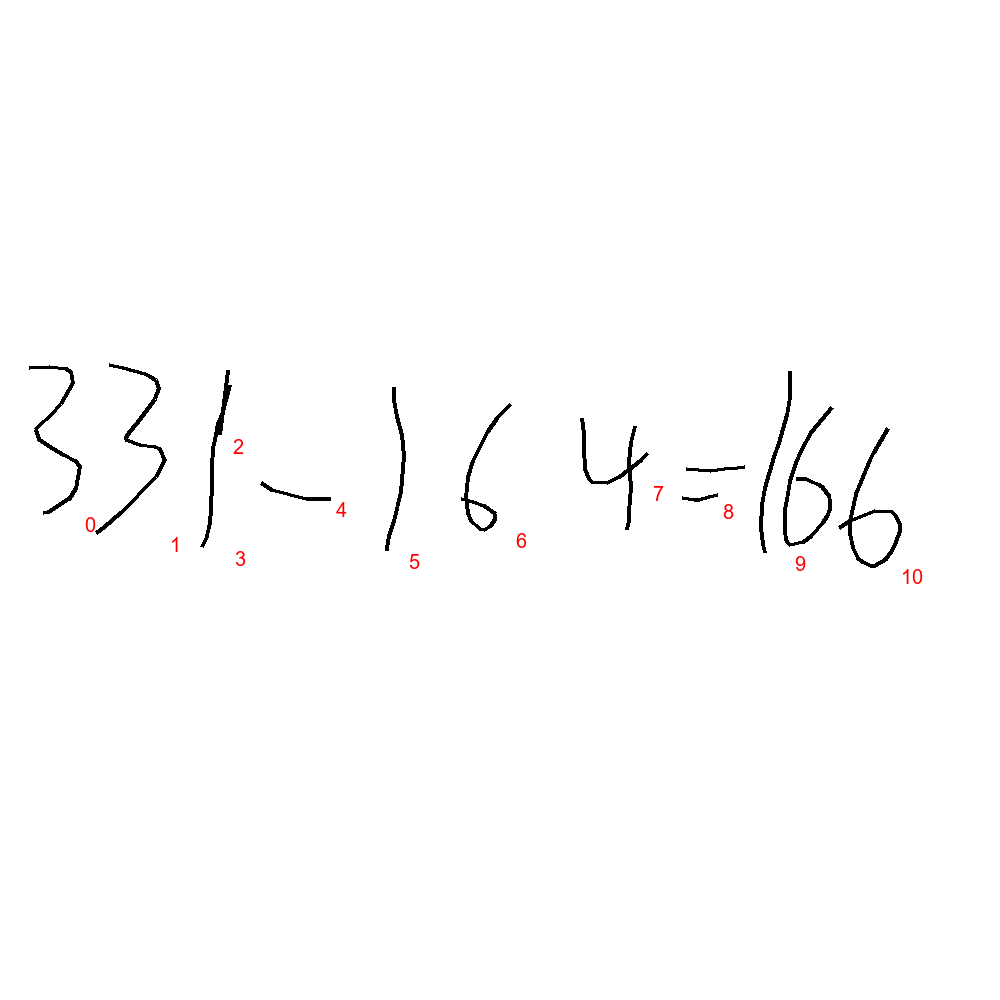 331-164=166
0 1 2 3 4 5 6 7 8 9 10